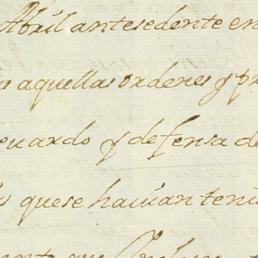 Abril antesedente en
aquellas ordenes y pr
y defensa de
que se havian teni